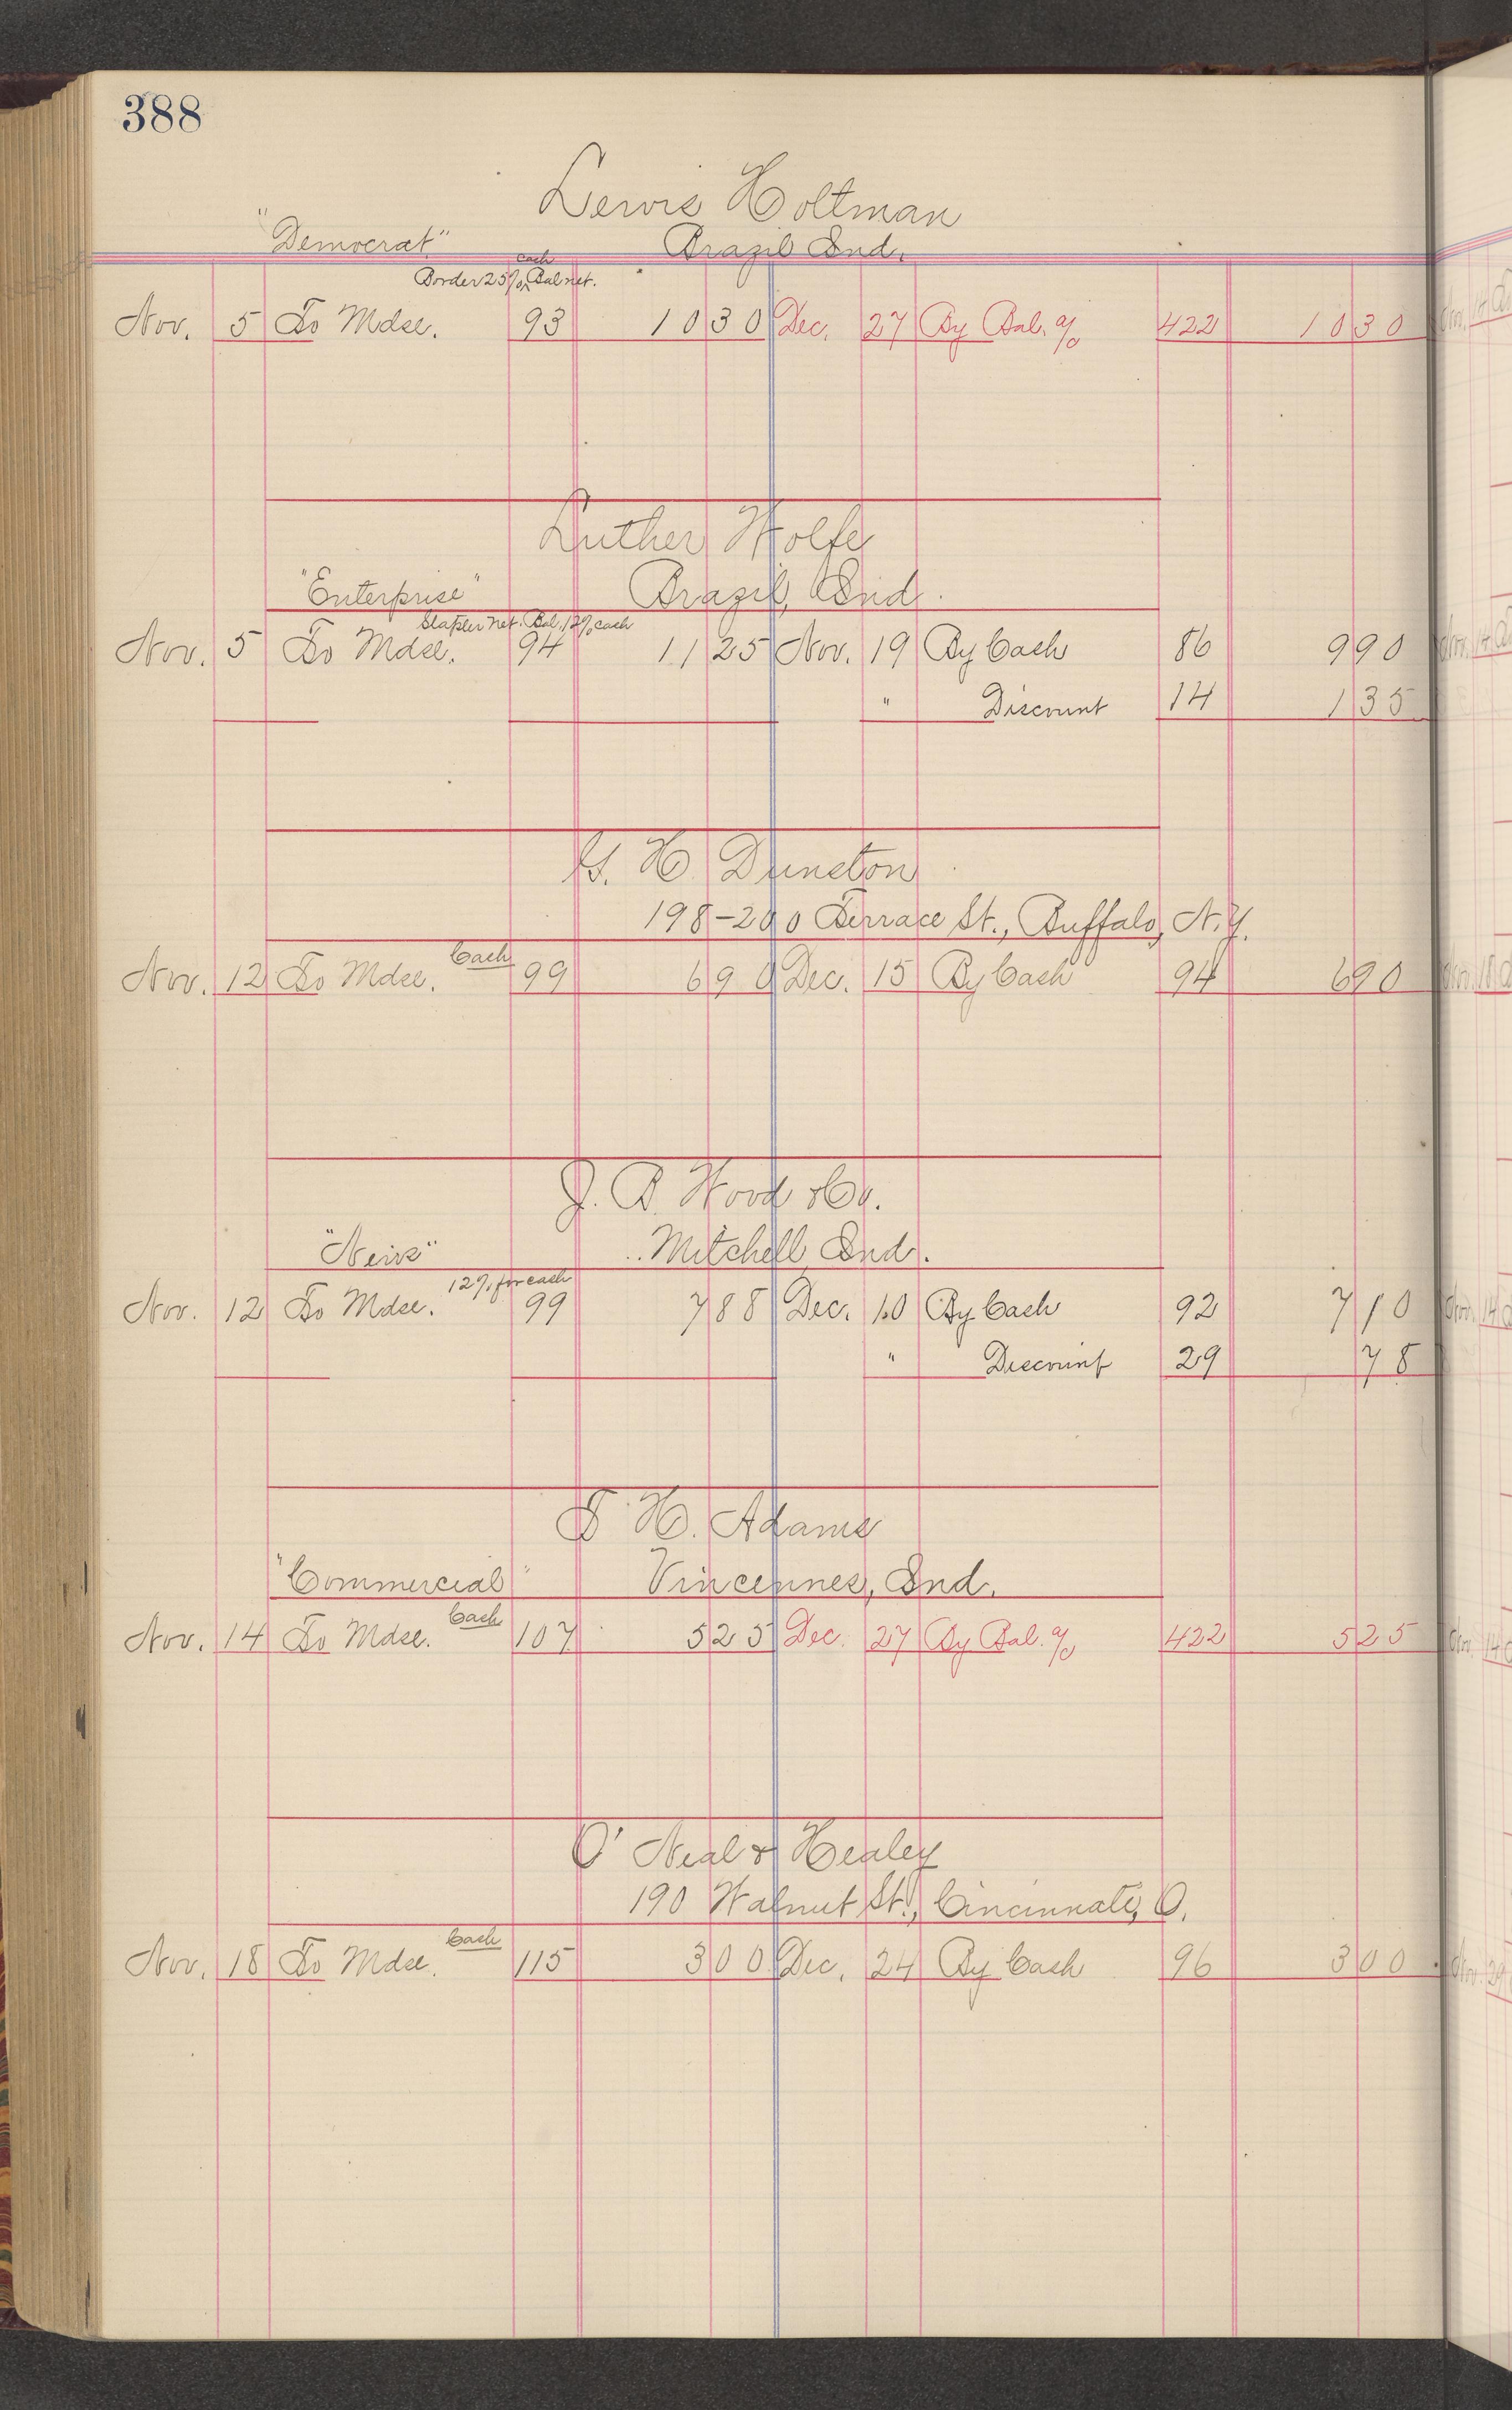 388
Lewis Holtman
"Democrat" Brazil Ind.
Border 25% cash Bal net.
Nov. 5 To Mdse. 93 10 30 Dec. 27 By Bal. a/c 422 10 30
Luther Wolfe
"Enterprise" Brazil, Ind.
Stapler net. Bal. 12% cash
Nov. 5 To Mdse. 94 11 25 Nov. 19 By Cash 86 9 90
" Discount 14 1 35
G. H. Dunston
198-200 Terrace St., Buffalo, N.Y.
Nov. 12 To Mdse. Cash 99 6 90 Dec. 15 By Cash 94 6 90
J. B. Wood & Co.
"News" Mitchell, Ind.
12% for cash
Nov. 12 To Mdse. 99 7 88 Dec. 10 By Cash 92 7 10
" Discount 29 78
T. H. Adams
"Commercial" Vincennes, Ind.
Nov. 14 To Mdse. Cash 107 5 25 Dec. 27 By Bal. a/c 422 5 25
O'Neal & Healey
190 Walnut St., Cincinnati, O.
Nov. 18 To Mdse. Cash 115 3 00 Dec. 24 By Cash 96 3 00